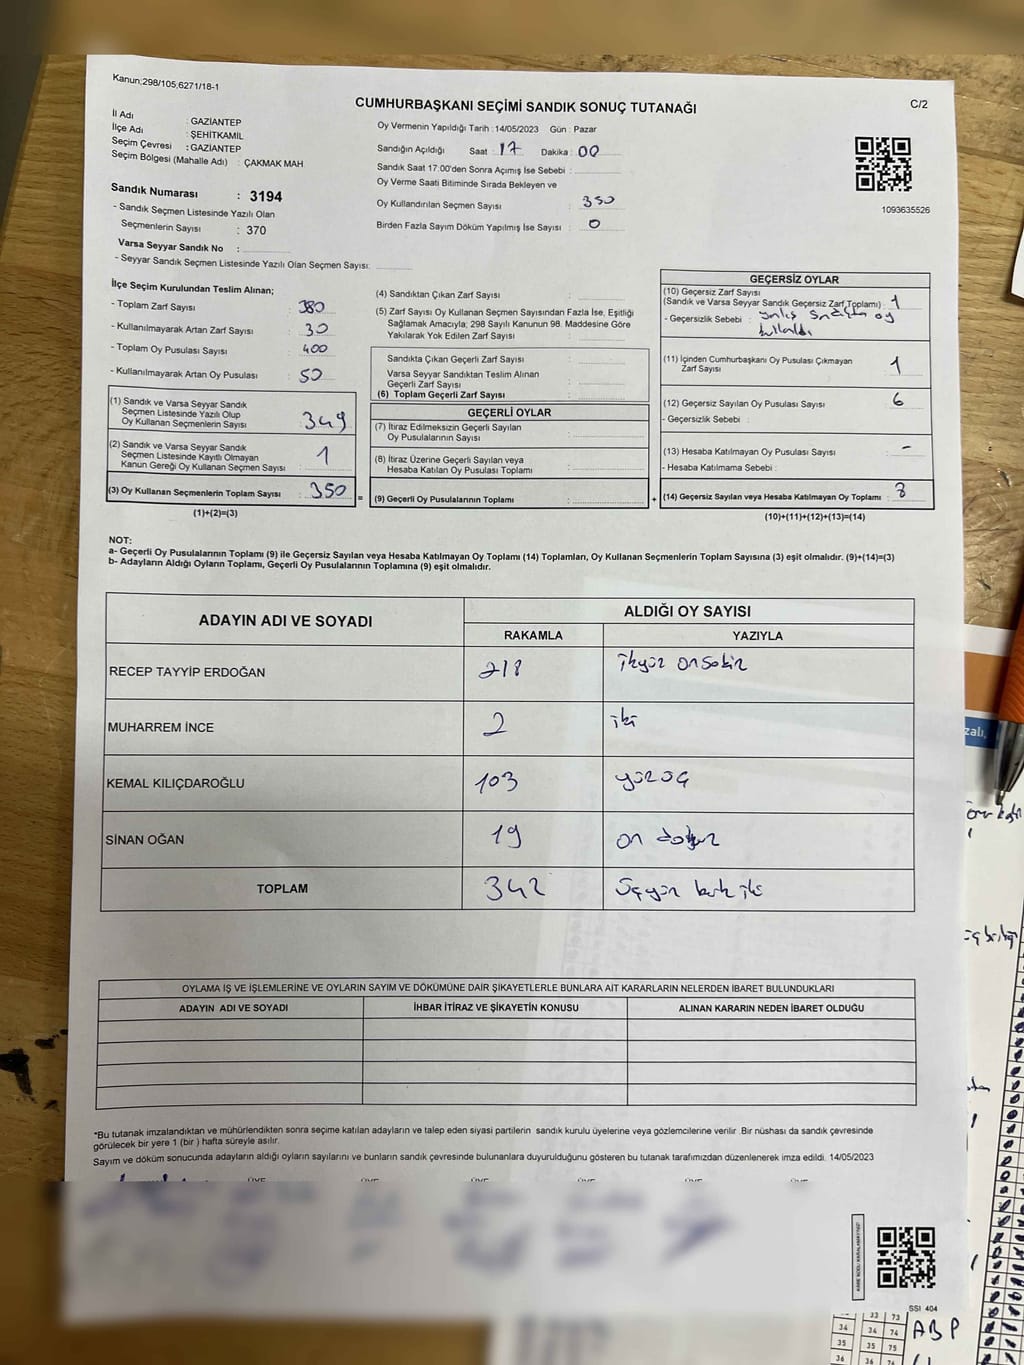 Kanun;298/105;6271/18-1
CUMHURBAŞKANI SEÇİMİ SANDIK SONUÇ TUTANAĞI
C/2
İl Adı : GAZİANTEP
İlçe Adı : ŞEHİTKAMİL
Seçim Çevresi : GAZİANTEP
Seçim Bölgesi (Mahalle Adı) : ÇAKMAK MAH
Sandık Numarası : 3194
- Sandık Seçmen Listesinde Yazılı Olan
Seçmenlerin Sayısı : 370
Varsa Seyyar Sandık No :
- Seyyar Sandık Seçmen Listesinde Yazılı Olan Seçmen Sayısı:
Oy Vermenin Yapıldığı Tarih : 14/05/2023 Gün : Pazar
Sandığın Açıldığı Saat : 17 Dakika : 00
Sandık Saat 17.00'den Sonra Açımış İse Sebebi :
Oy Verme Saati Bitiminde Sırada Bekleyen ve
Oy Kullandırılan Seçmen Sayısı : 350
Birden Fazla Sayım Döküm Yapılmış İse Sayısı : 0
1093635526
İlçe Seçim Kurulundan Teslim Alınan;
- Toplam Zarf Sayısı : 380
- Kullanılmayarak Artan Zarf Sayısı : 30
- Toplam Oy Pusulası Sayısı : 400
- Kullanılmayarak Artan Oy Pusulası : 50
(1) Sandık ve Varsa Seyyar Sandık
Seçmen Listesinde Yazılı Olup
Oy Kullanan Seçmenlerin Sayısı : 349
(2) Sandık ve Varsa Seyyar Sandık
Seçmen Listesinde Kayıtlı Olmayan
Kanun Gereği Oy Kullanan Seçmen Sayısı : 1
(3) Oy Kullanan Seçmenlerin Toplam Sayısı : 350
(1)+(2)=(3)
=
(4) Sandıktan Çıkan Zarf Sayısı :
(5) Zarf Sayısı Oy Kullanan Seçmen Sayısından Fazla İse, Eşitliği
Sağlamak Amacıyla; 298 Sayılı Kanunun 98. Maddesine Göre
Yakılarak Yok Edilen Zarf Sayısı :
Sandıkta Çıkan Geçerli Zarf Sayısı :
Varsa Seyyar Sandıktan Teslim Alınan
Geçerli Zarf Sayısı :
(6) Toplam Geçerli Zarf Sayısı :
GEÇERLİ OYLAR
(7) İtiraz Edilmeksizin Geçerli Sayılan
Oy Pusulalarının Sayısı :
(8) İtiraz Üzerine Geçerli Sayılan veya
Hesaba Katılan Oy Pusulası Toplamı :
(9) Geçerli Oy Pusulalarının Toplamı :
+
GEÇERSİZ OYLAR
(10) Geçersiz Zarf Sayısı
(Sandık ve Varsa Seyyar Sandık Geçersiz Zarf Toplamı) : 1
- Geçersizlik Sebebi : oy
(11) İçinden Cumhurbaşkanı Oy Pusulası Çıkmayan
Zarf Sayısı : 1
(12) Geçersiz Sayılan Oy Pusulası Sayısı : 6
- Geçersizlik Sebebi :
(13) Hesaba Katılmayan Oy Pusulası Sayısı : -
- Hesaba Katılmama Sebebi :
(14) Geçersiz Sayılan veya Hesaba Katılmayan Oy Toplamı : 8
(10)+(11)+(12)+(13)=(14)
NOT:
a- Geçerli Oy Pusulalarının Toplamı (9) ile Geçersiz Sayılan veya Hesaba Katılmayan Oy Toplamı (14) Toplamları, Oy Kullanan Seçmenlerin Toplam Sayısına (3) eşit olmalıdır. (9)+(14)=(3)
b- Adayların Aldığı Oyların Toplamı, Geçerli Oy Pusulalarının Toplamına (9) eşit olmalıdır.
ADAYIN ADI VE SOYADI ALDIĞI OY SAYISI
RAKAMLA YAZIYLA
RECEP TAYYİP ERDOĞAN 218 ikiyüz onsekiz
MUHARREM İNCE 2 iki
KEMAL KILIÇDAROĞLU 103 yüzüç
SİNAN OĞAN 19 on dokuz
TOPLAM 342 üçyüz kırk iki
OYLAMA İŞ VE İŞLEMLERİNE VE OYLARIN SAYIM VE DÖKÜMÜNE DAİR ŞİKAYETLERLE BUNLARA AİT KARARLARIN NELERDEN İBARET BULUNDUKLARI
ADAYIN ADI VE SOYADI İHBAR İTİRAZ VE ŞİKAYETİN KONUSU ALINAN KARARIN NEDEN İBARET OLDUĞU
*Bu tutanak imzalandıktan ve mühürlendikten sonra seçime katılan adayların ve talep eden siyasi partilerin sandık kurulu üyelerine veya gözlemcilerine verilir. Bir nüshası da sandık çevresinde
görülecek bir yere 1 (bir ) hafta süreyle asılır.
Sayım ve döküm sonucunda adayların aldığı oyların sayılarını ve bunların sandık çevresinde bulunanlara duyurulduğunu gösteren bu tutanak tarafımızdan düzenlenerek imza edildi. 14/05/2023
SSI 404
33 73
34 34 74
35 35 75
36 36
ABP
zalı,